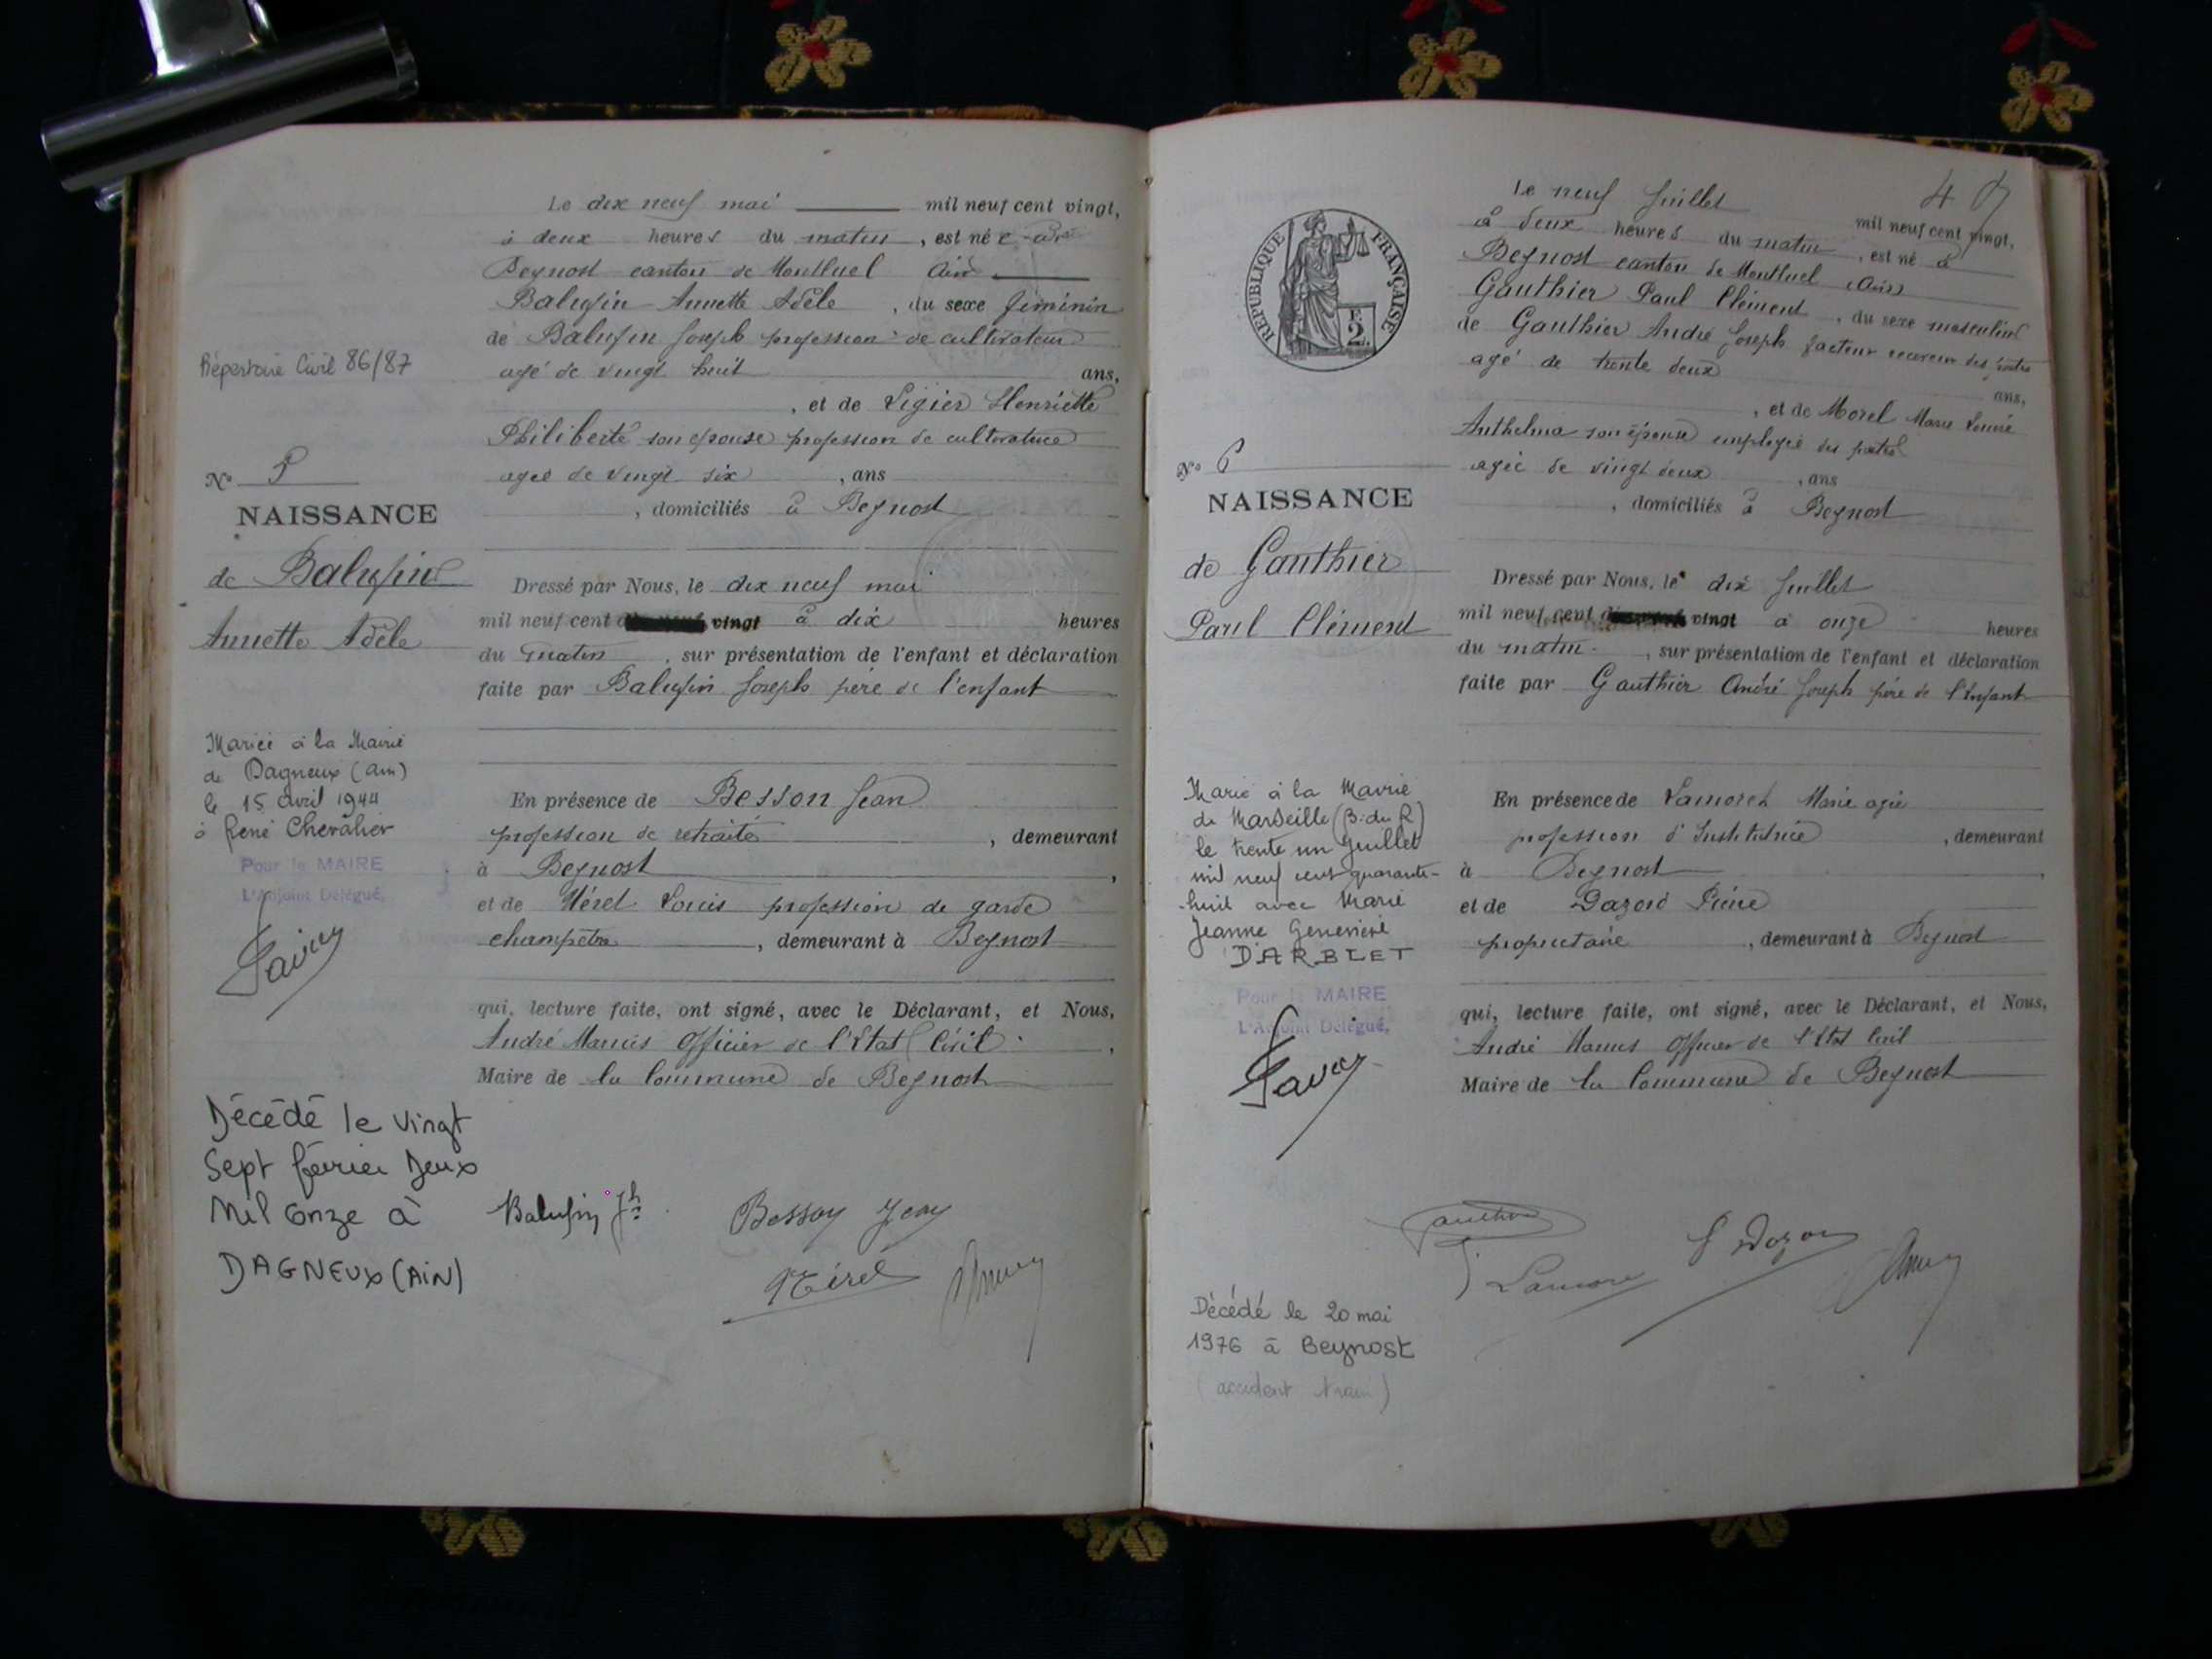 Le dix neuf mai mil neuf cent vingt,
à deux heures du matin, est né e à
Beynost canton de Montluel Ain
Balufin Annette Adèle, du sexe féminin
de Balufin Joseph profession de cultivateur
agé de vingt huit ans,
, et de Ligier Henriette
Philiberte son épouse profession de cultivatrice
agée de vingt six, ans
, domiciliés à Beynost
Répertoire Civil 86/87
No 5
NAISSANCE
de Balufin
Annette Adèle
Dressé par Nous, le dix neuf mai
mil neuf cent vingt à dix heures
du matin, sur présentation de l'enfant et déclaration
faite par Balufin Joseph père de l'enfant
Mariée à la Mairie
de Dagneux (Ain)
le 15 avril 1944
à René Chevalier
Pour le MAIRE
L'Adjoint Délégué,
En présence de Besson Jean
profession de retraité, demeurant
à Beynost,
et de Mérel Louis profession de garde
champêtre, demeurant à Beynost
qui, lecture faite, ont signé, avec le Déclarant, et Nous,
André Marius Officier de l'Etat Civil,
Maire de la Commune de Beynost
Décédé le vingt
Sept février Deux
Mil Onze à
DAGNEUX (AIN)
Balufin Jh
Besson Jean
Mérel
4
RÉPUBLIQUE FRANÇAISE
F.
2
Le neuf Juillet mil neuf cent vingt,
à deux heures du matin, est né à
Beynost canton de Montluel (Ain)
Gauthier Paul Clément, du sexe masculin
de Gauthier André Joseph facteur receveur des postes
agé de trente deux ans,
, et de Morel Marie Louise
Anthelma son épouse employée des postes
agée de vingt deux, ans
, domiciliés à Beynost
No 6
NAISSANCE
de Gauthier
Paul Clément
Dressé par Nous, le dix Juillet
mil neuf cent vingt à onze heures
du matin, sur présentation de l'enfant et déclaration
faite par Gauthier André Joseph père de l'Enfant
Marié à la Mairie
de Marseille (B. du R)
le trente un Juillet
mil neuf cent quarante-
huit avec Marie
Jeanne Geneviève
DARBLET
Pour le MAIRE
L'Adjoint Délégué,
En présence de Marie agée
profession d'Institutrice, demeurant
à Beynost,
et de
propriétaire, demeurant à Beynost
qui, lecture faite, ont signé, avec le Déclarant, et Nous,
André Marius Officier de l'Etat Civil
Maire de la Commune de Beynost
Décédé le 20 mai
1976 à Beynost
(accident train)